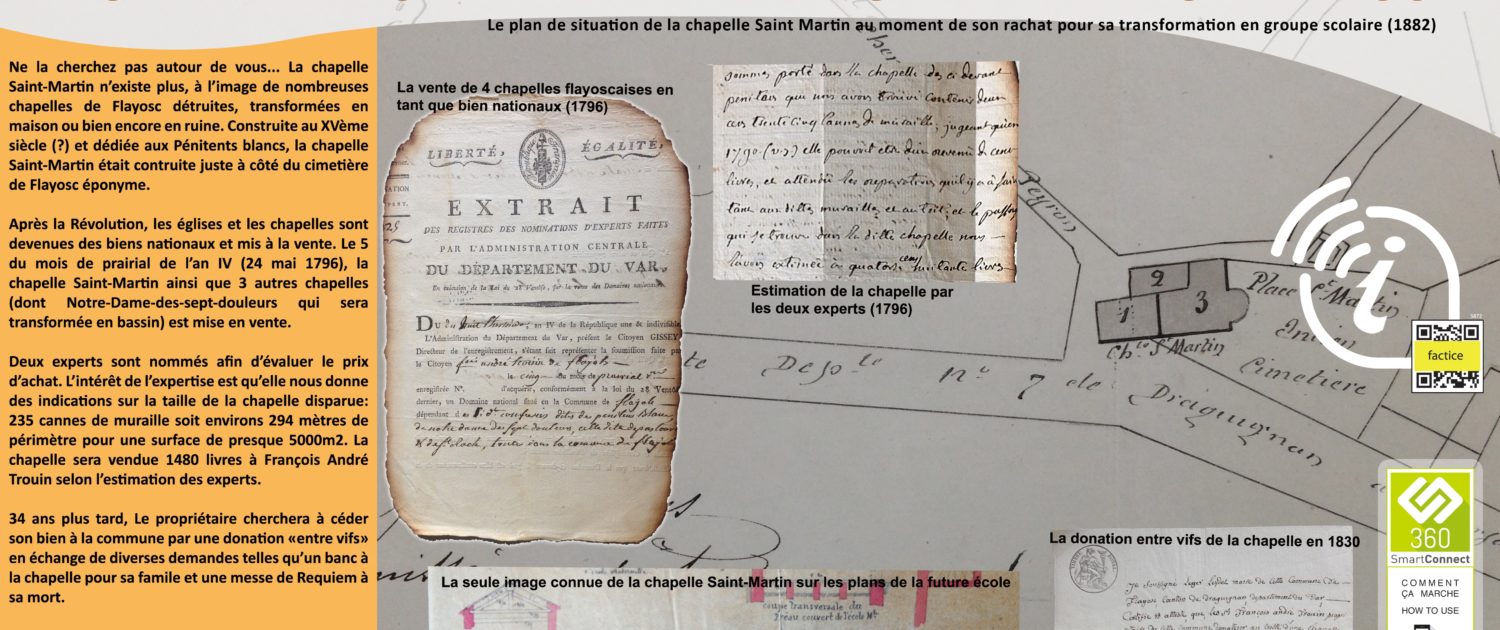 Le plan de situation de la chapelle Saint Martin au moment de son rachat pour sa transformation en groupe scolaire (1882)
Ne la cherchez pas autour de vous... La chapelle
Saint-Martin n'existe plus, à l'image de nombreuses
chapelles de Flayosc détruites, transformées en
maison ou bien encore en ruine. Construite au XVème
siècle (?) et dédiée aux Pénitents blancs, la chapelle
Saint-Martin était contruite juste à côté du cimetière
de Flayosc éponyme.
Après la Révolution, les églises et les chapelles sont
devenues des biens nationaux et mis à la vente. Le 5
du mois de prairial de l'an IV (24 mai 1796), la
chapelle Saint-Martin ainsi que 3 autres chapelles
(dont Notre-Dame-des-sept-douleurs qui sera
transformée en bassin) est mise en vente.
Deux experts sont nommés afin d'évaluer le prix
d'achat. L'intérêt de l'expertise est qu'elle nous donne
des indications sur la taille de la chapelle disparue:
235 cannes de muraille soit environs 294 mètres de
périmètre pour une surface de presque 5000m2. La
chapelle sera vendue 1480 livres à François André
Trouin selon l'estimation des experts.
34 ans plus tard, Le propriétaire cherchera à céder
son bien à la commune par une donation «entre vifs»
en échange de diverses demandes telles qu'un banc à
la chapelle pour sa famile et une messe de Requiem à
sa mort.
La vente de 4 chapelles flayoscaises en
tant que bien nationaux (1796)
LIBERTÉ, ÉGALITÉ,
EXTRAIT
DES REGISTRES DES NOMINATIONS D'EXPERTS FAITES
PAR L'ADMINISTRATION CENTRALE
DU DÉPARTEMENT DU VAR,
En exécution de la Loi du 28 Ventôse, sur la vente des Domaines nationaux.
Du an IV de la République une & indivisible
L'Administration du Département du Var, présent le Citoyen GISSEY
Directeur de l'enregistrement, s'étant fait représenter la soumission faite par
le Citoyen andré
le cinq du mois de prairial
enregistrée N°. d'acquérir, conformément à la loi du 28 Ventôse
dernier, un Domaine national situé en la Commune de
dépendant d
de notre dame des sept douleurs,
toutes dans la commune de
sommes porté dans la chapelle des ci devant
penitens que nous avons trouvé contenir deux
cens trente cinq cannes de muraille, jugeant qu'en
1790 (v.s) elle pouvoit etre d'un revenu de cent
livres, et attendu les reparations qu'il y a à faire
tant aux dittes murailles et au toit, et le passage
qui se trouve dans la ditte chapelle nous
l'avons estimée à quatorze cent huitante livres
Estimation de la chapelle par
les deux experts (1796)
Peyron
1
2
3
Place St Martin
Ch.le St Martin
Ancien
Cimetiere
Route Dep.le n° 7 de Draguignan
5872
factice
360
SmartConnect
COMMENT
ÇA MARCHE
HOW TO USE
La seule image connue de la chapelle Saint-Martin sur les plans de la future école
coupe transversale du
Préau couvert de l'école
La donation entre vifs de la chapelle en 1830
Je soussigné maire de cette Commune de
Flayosc Canton de draguignan departement du Var
Certifie et atteste que les Sr francois andré Trouin